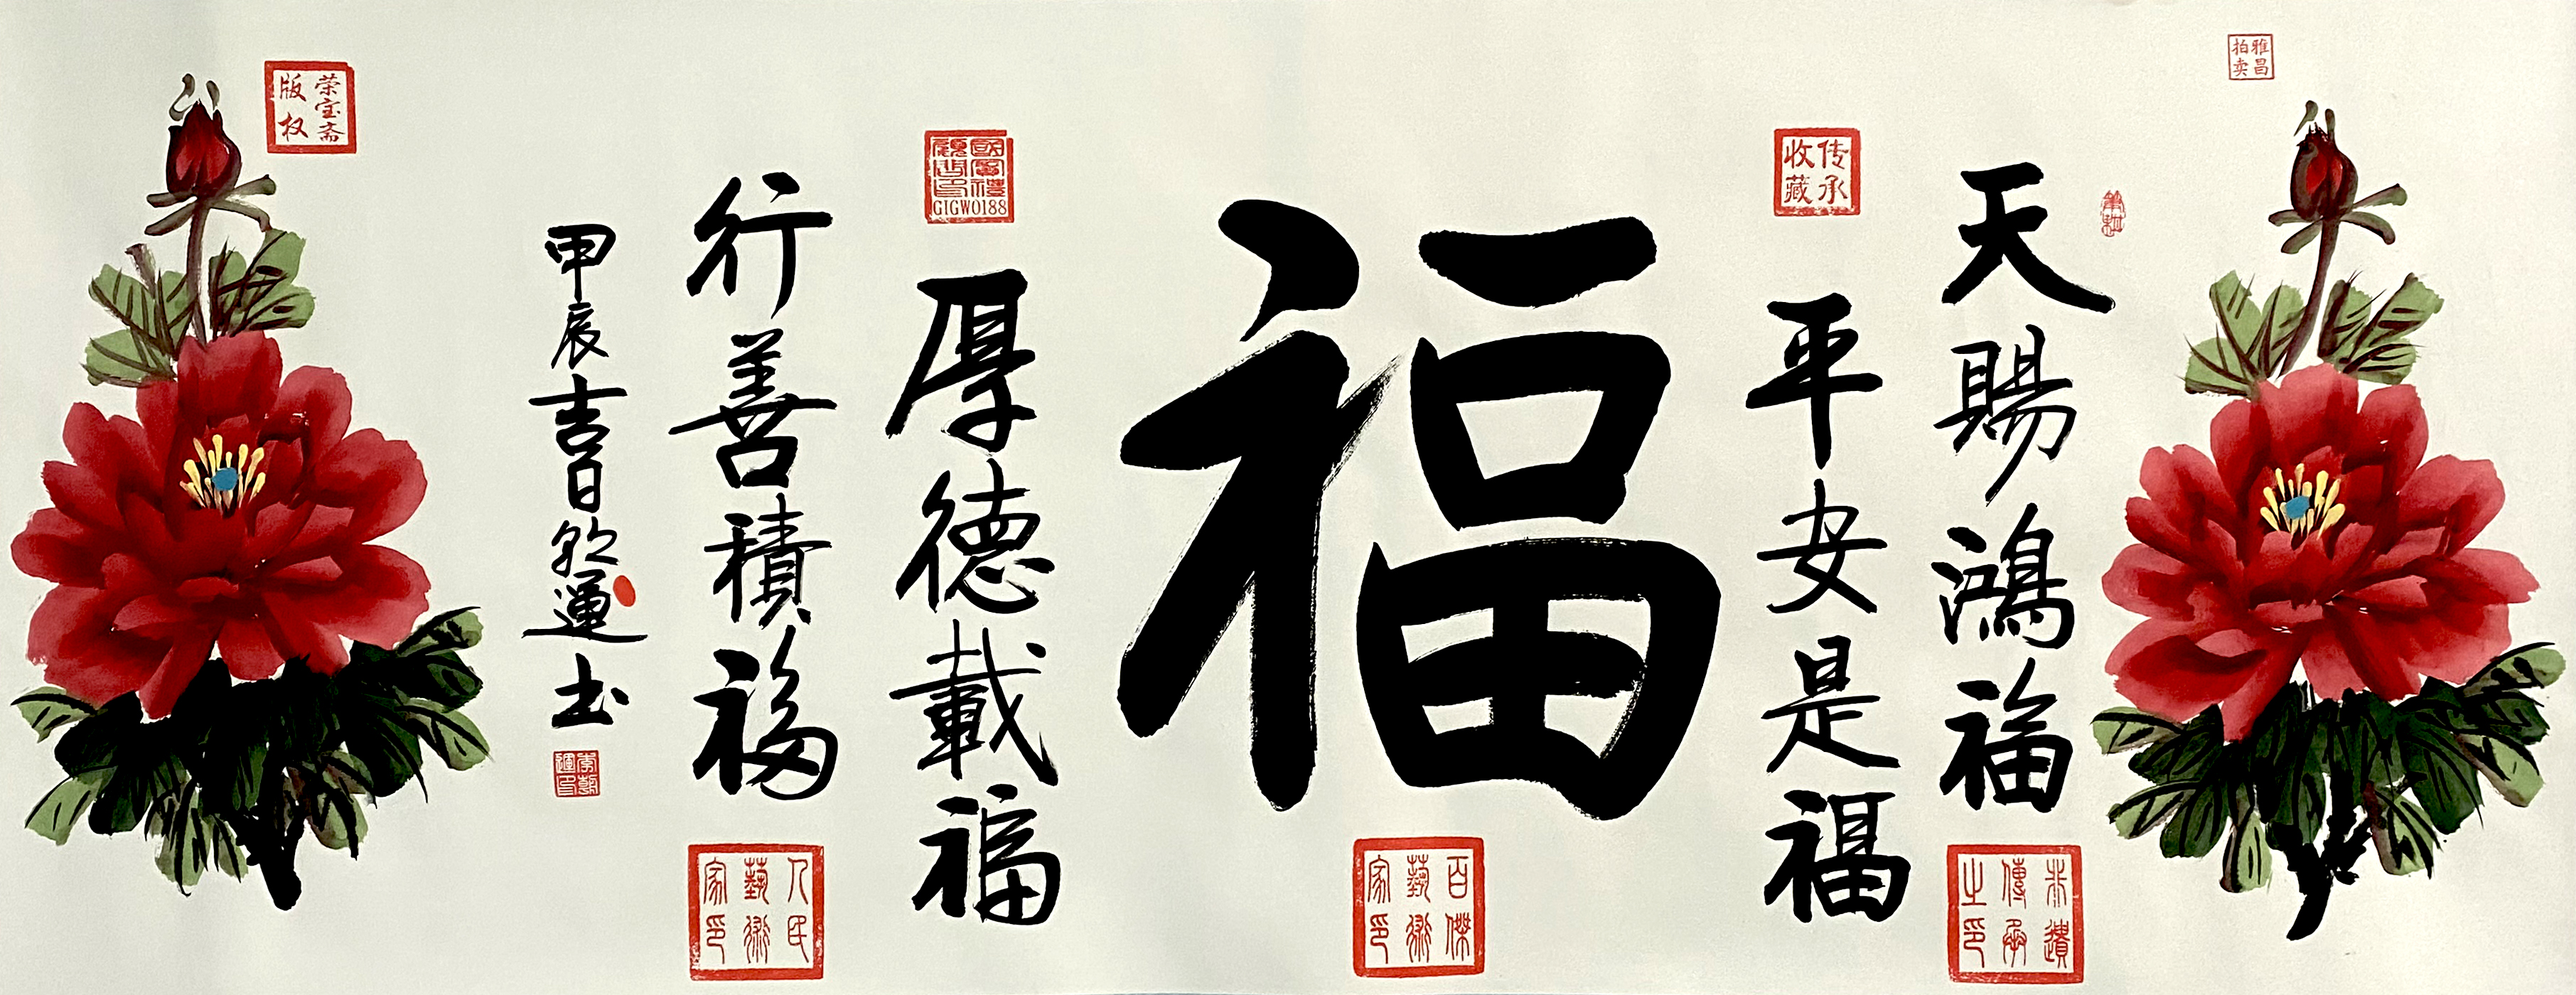 雅昌拍卖
天賜鴻福
平安是福
传承收藏
福
厚德載福
行善積福
甲辰吉日
運书
荣宝斋版权
國宴禮
GIGW0188
百傑藝術家印
人民藝術家印
遺傳承之印